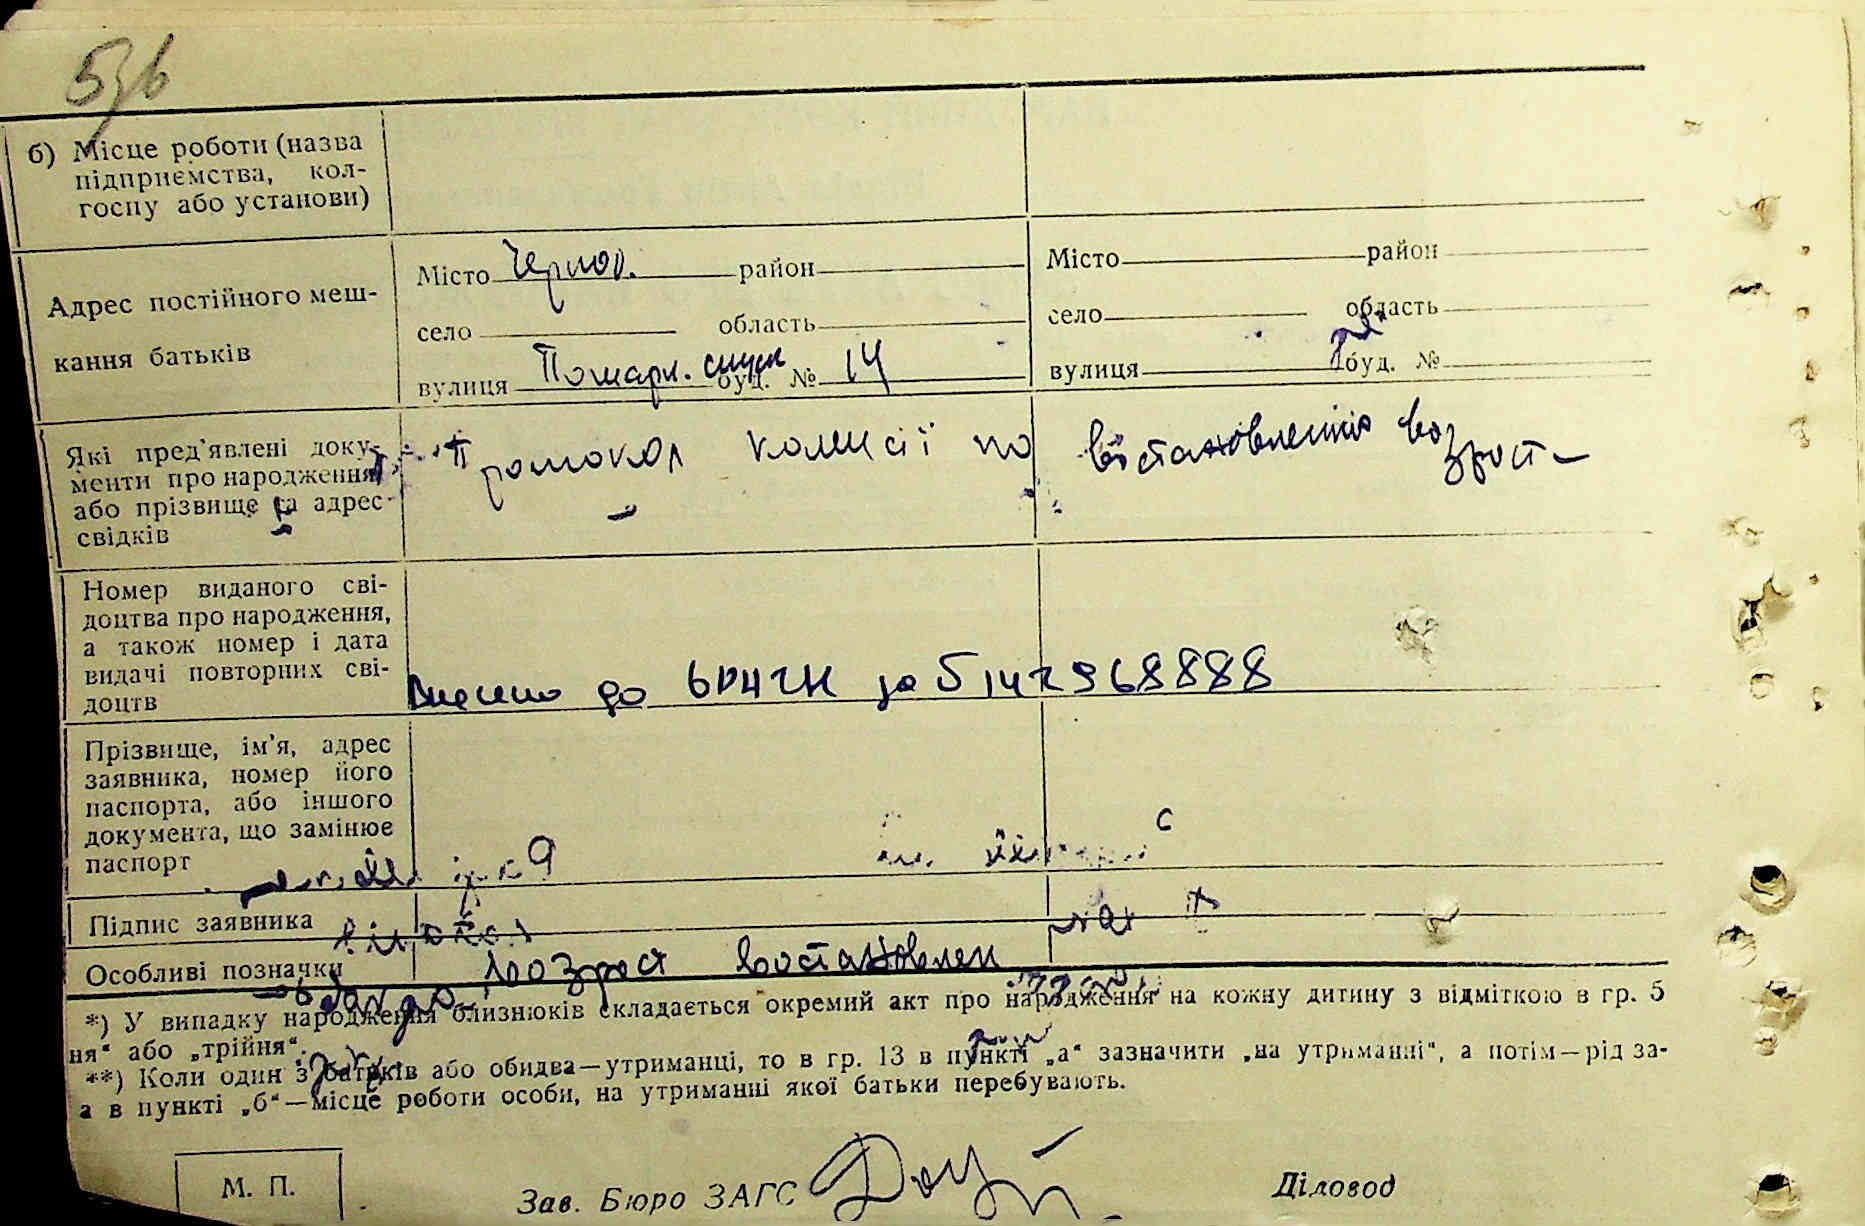 б) Місце роботи (назва
підприємства, кол-
госпу або установи)
Адрес постійного меш-
кання батьків
Місто район
село область
вулиця Пожарн. спуск буд. № 14
Місто район
село область
вулиця буд. №
Які пред'явлені доку-
менти про народження
або прізвище та адрес
свідків
Протокол комисії по востановленню возраст
Номер виданого сві-
доцтва про народження,
а також номер і дата
видачі повторних сві-
доцтв
Внесено до за 5147968888
Прізвище, ім'я, адрес
заявника, номер його
паспорта, або іншого
документа, що замінює
паспорт
Підпис заявника
Особливі позначки
Возраст востановлен
*) У випадку народження близнюків складається окремий акт про народження на кожну дитину з відміткою в гр. 5
ня" або „трійня".
**) Коли один з батьків або обидва—утриманці, то в гр. 13 в пункті „а" зазначити „на утриманні", а потім—рід за-
а в пункті „б"—місце роботи особи, на утриманні якої батьки перебувають.
М. П.
Зав. Бюро ЗАГС
Діловод